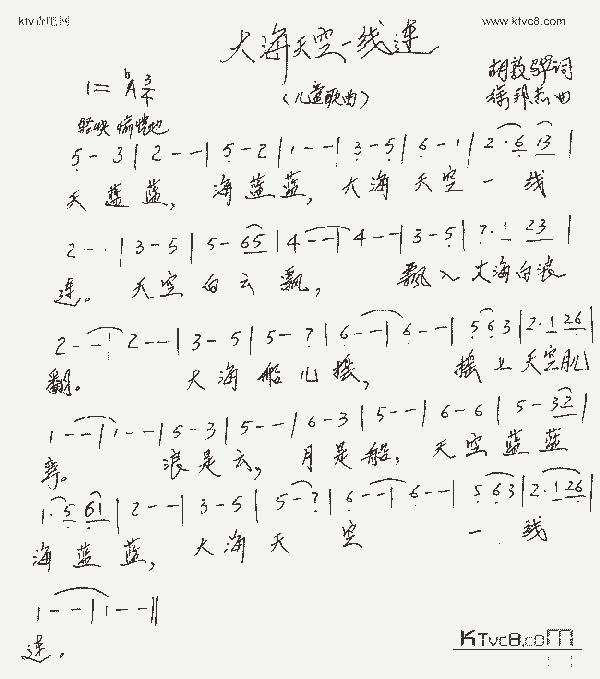 www.ktvc8.com
大海天空一线连
1=ᵇA 3/4
(儿童歌曲)
胡敦骅词
徐邦杰曲
轻快 愉悦地
5 - 3 | 2 - - | 5 - 2 | 1 - - | 3 - 5 | 6 - 1 | 2 · 6 13 |
天 蓝 蓝, 海 蓝 蓝, 大 海 天 空 一 线
2 - - | 3 - 5 | 5 - 65 | 4 - - | 4 - - | 3 - 5 | 7 · 1 23 |
连。 天 空 白 云 飘, 飘 入 大 海 白 浪
2 - - | 2 - - | 3 - 5 | 5 - 7 | 6 - - | 6 - - | 5 6 3 | 2 · 1 26 |
翻。 大 海 船 儿 摇, 摇 上 天 空
1 - - | 1 - - | 5 - 3 | 5 - - | 6 - 3 | 5 - - | 6 - 6 | 5 - 32 |
浪 是 云, 月 是 船, 天 空 蓝 蓝
1 · 5 61 | 2 - - | 3 - 5 | 5 - 7 | 6 - - | 6 - - | 5 6 3 | 2 · 1 26 |
海 蓝 蓝, 大 海 天 空 一 线
1 - - | 1 - - ‖
连。
KTvc8.com